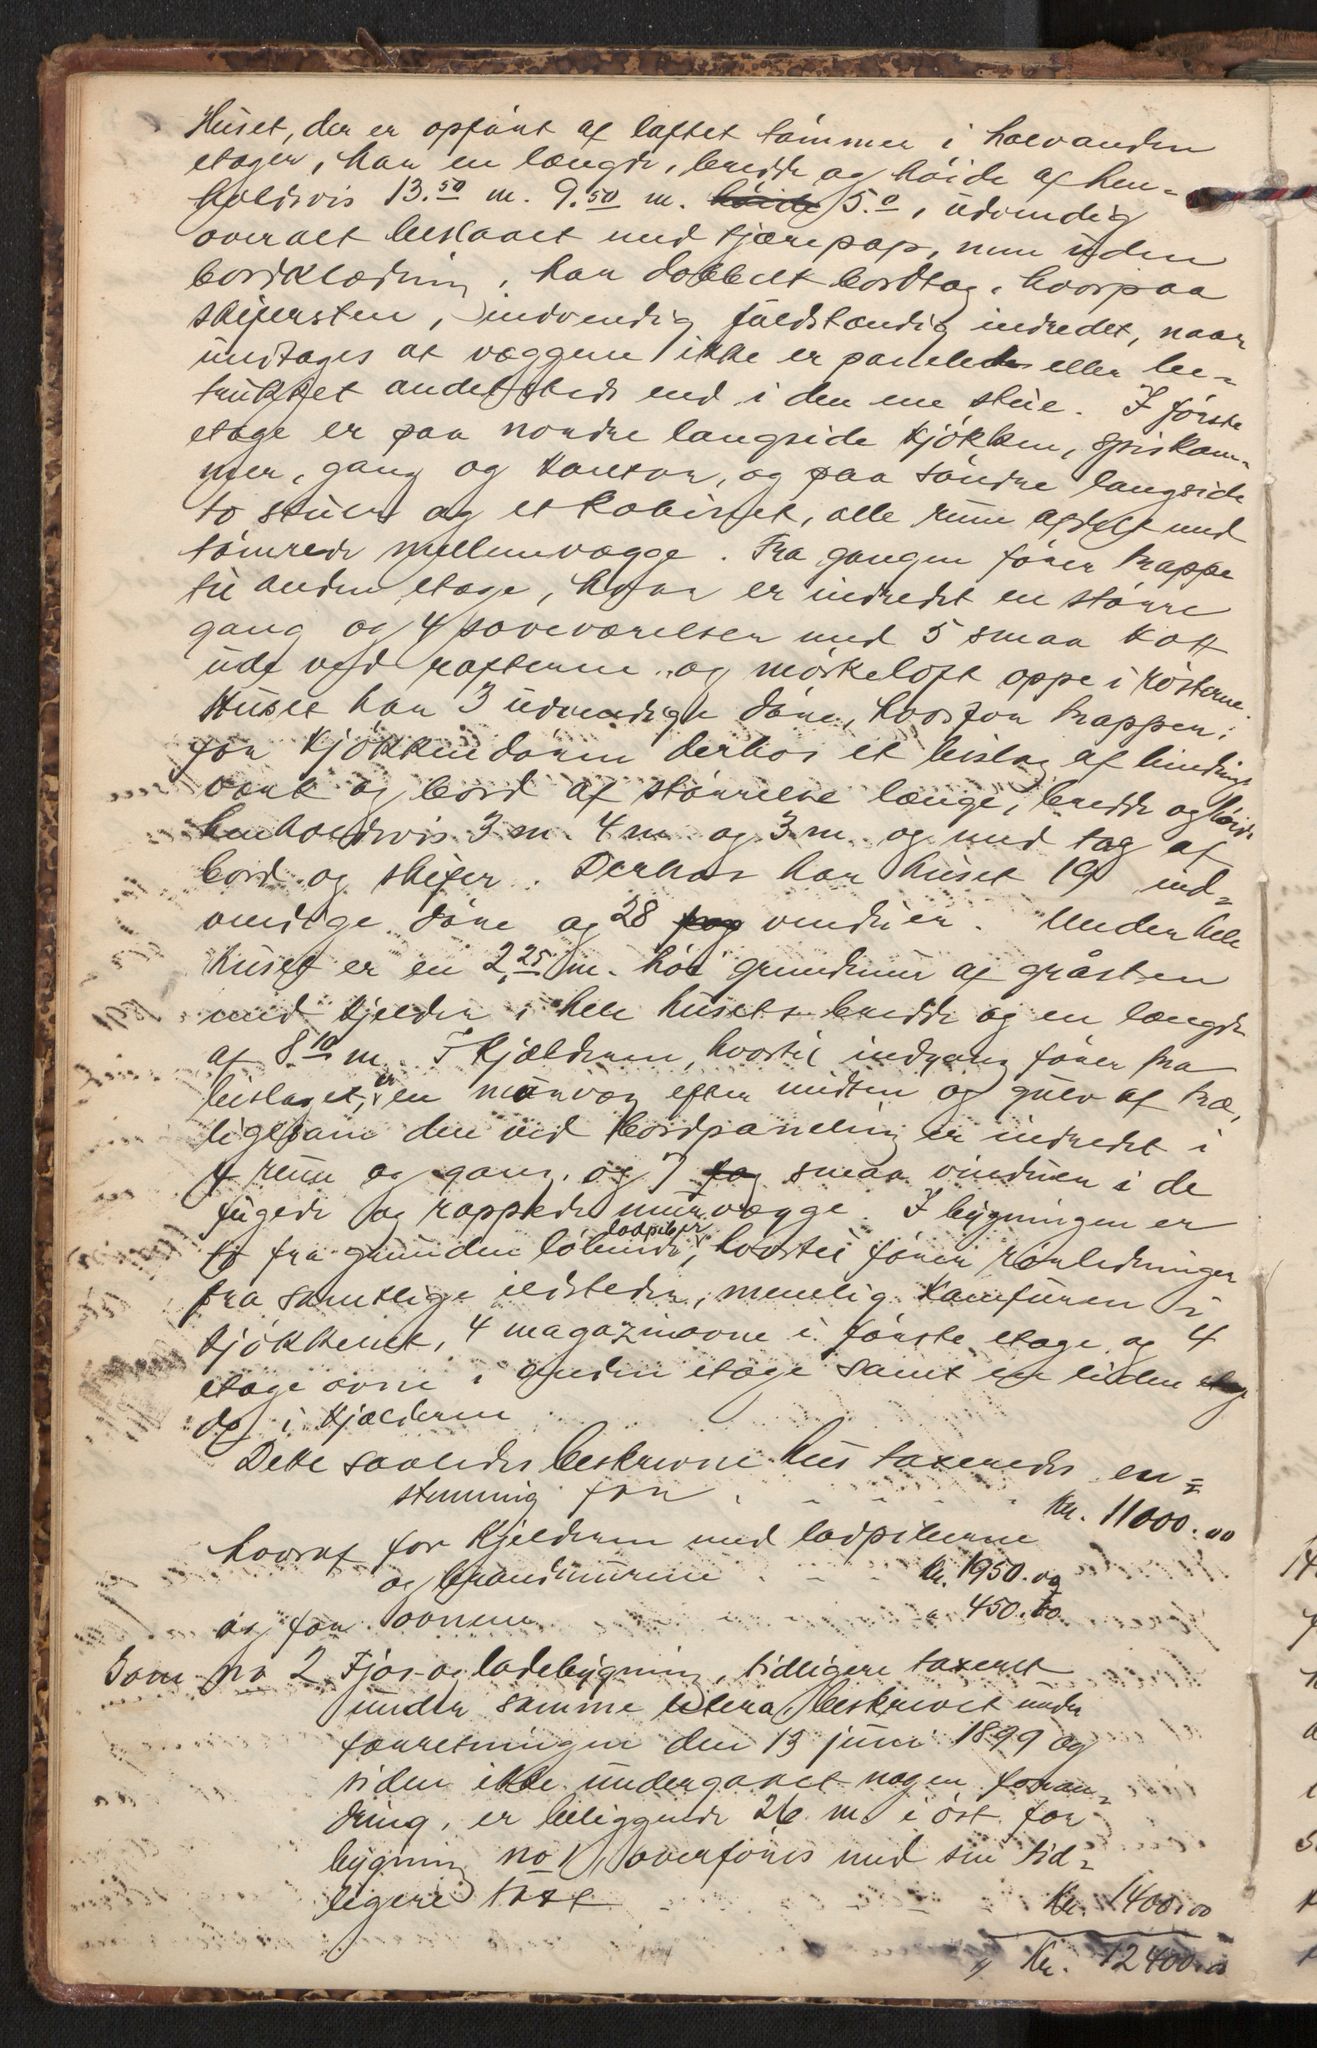 Huset, der er opført af laftet tømmer i halvanden
etager, har en længde, bredde og høide af hen-
holdsvis 13.50 m. 9.50 m. høide 5.0, udvendig
overalt beslaaet med tjærepap, men uden
bordklædning, har dobbelt bordtag, hvorpaa
skifersten, indvendig fuldstændig indredet, naar
undtages at væggene ikke er panelede eller be-
trukket andetsteds end i den ene stue. I første
etage er paa nordre langside kjøkken, spiskam-
mer, gang og kontor, og paa søndre langside
to stuer og et kabinet, alle rum afdelt med
tømrede mellemvægge. Fra gangen fører trappe
til anden etage, hvor er indredet en større
gang og 4 soveværelser med 5 smaa kott
ude ved rafterne og mørkeloft oppe i røsterne.
Huset har 3 udvendige døre, hvorfor trapper;
for kjøkkendøren derhos et bislag af bindings
værk og bord af størrelse længe, bredde og høide
henholdsvis 3 m. 4 m og 3 m. og med tag af
bord og skifer. Derhos har huset 19 ind-
vendige døre og 28 fag vinduer. Under hele
huset er en 2.25 m. høi grundmur af gråsten
med kjelder i hele husets bredde og en længde
af 8.10 m. I kjælderen, hvortil indgang fører fra
bislaget, er en murvæg efter midten og gulv af træ,
ligesom den ved bordpaneling er indredet i
4 rum og gang, og 7 fag smaa vinduer i de
fugede og rappede murvægge. I bygningen er
to fra grunden løbende ladpiber, hvortil fører rørledninger
fra samtlige ildsteder, nemlig kamfuren i
kjøkkenet, 4 magazinovne i første etage og 4
etageovne i anden etage samt en liden etage
do i kjælderen.
Dette saaledes beskrevne hus taxeredes en-
stemmig for . . . . . Kr. 11000.00
hvoraf for kjelderen med ladpiberne
og brandmurene . . . kr. 1950. og
og for ovnene " 450.00
Som no 2 Fjøs- og ladebygning, tidligere taxeret
under samme litera, beskrevet under
forretningen den 13 juni 1899 og
siden ikke undergaaet nogen foran-
dring, er beliggende 26 m. i øst for
bygning no 1, overføres med sin tid-
ligere taxt Kr. 1400.00
Kr. 12400.00